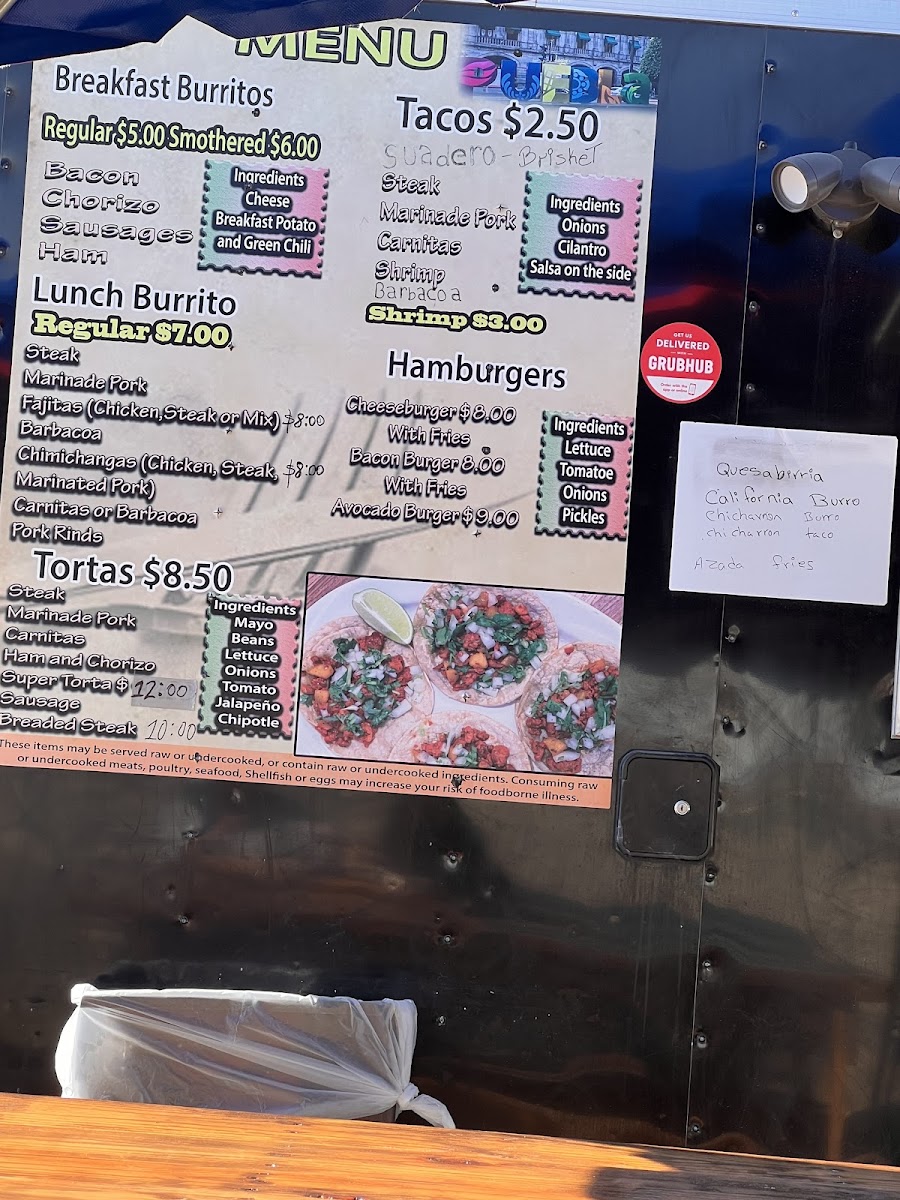 MENU
Breakfast Burritos
Regular $5.00 Smothered $6.00
Bacon
Chorizo
Sausages
Ham
Ingredients
Cheese
Breakfast Potato
and Green Chili
Lunch Burrito
Regular $7.00
Steak
Marinade Pork
Fajitas (Chicken,Steak or Mix) $8:00
Barbacoa
Chimichangas (Chicken, Steak, $8:00
Marinated Pork)
Carnitas or Barbacoa
Pork Rinds
Tortas $8.50
Steak
Marinade Pork
Carnitas
Ham and Chorizo
Super Torta $ 12:00
Sausage
Breaded Steak 10:00
Ingredients
Mayo
Beans
Lettuce
Onions
Tomato
Jalapeño
Chipotle
Tacos $2.50
Guadero - Brisket
Steak
Marinade Pork
Carnitas
Shrimp
Barbacoa
Shrimp $3.00
Ingredients
Onions
Cilantro
Salsa on the side
Hamburgers
Cheeseburger $8.00
With Fries
Bacon Burger 8.00
With Fries
Avocado Burger $9.00
Ingredients
Lettuce
Tomatoe
Onions
Pickles
These items may be served raw or undercooked, or contain raw or undercooked ingredients. Consuming raw
or undercooked meats, poultry, seafood, Shellfish or eggs may increase your risk of foodborne illness.
GET US
DELIVERED
WITH
GRUBHUB
Order with the
app or online
Quesabirria
California Burro
Chicharron Burro
chicharron taco
Azada fries